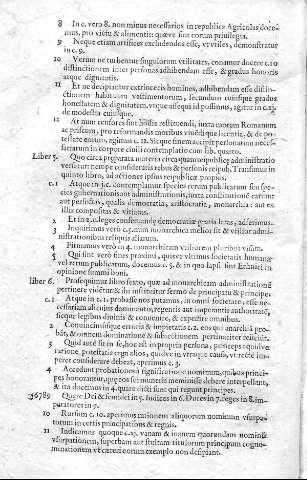 8 In c. vero 8. non minus necessarios in republica Agricolas doce
mus, pro victu & alimentis: quæve sint eorum priuilegia.
9 Neque etiam artifices excludendos esse, vt vtiles, demonstratur
in c. 9.
10 Verum ne turbentur singulorum vtilitates, conamur docere c. 10
distinctionem inter personas adhibendam esse, & gradus honoris
atque dignitatis.
11 Et ne decipiantur extrinseco homines, adhibendam esse distin-
ctionem habituum vestimentorum, secundum cuiusque gradus
honestatem & dignitatem, vtque assequi id possimus, agitur in c. 11.
de modestia cuiusque.
12 At cum censores sint restituendi, iuxta morem Romanum
ac priscum, pro reformandis moribus
agimus c. 12. Sicque finem accipit personarum neces-
sariarum in corpore ciuili contemplatio cum lib. quarto.
Liber 5. Quo circa præparata materia circa quam reipublicæ administratio
versatur nempe consideratis rebus & personis reipub. Transimus in
quinto libro, ad actiones ipsius reipublicæ proprias.
c. 1 Atque in 1. c. contemplamur species rerum publicarum siue spe-
cies gubernationis atque administrationis, iuxta combinationes earum
aut perfectas, qualis democratia, aristocratia, monarchia: aut ex
illis compositas & vitiatas.
2 Et in 2. eligere democratiæ adferimus.
3 Inquirimus vero c. 3. num monarchica melior sit & vtilior admi-
nistrationibus reliquis aliarum.
4 Firmamus vero in 4. monarchicam vtiliorem pluribus visam.
5 Qui sint vero fines proximi, quisve vltimus societatis humanæ
vel rerum publicarum, docemus c. 5. & in quo lapsi sint Ethnici in
opinione summi boni.
liber 6. Prosequimur libro sexto, quæ ad monarchicam administrationem
pertinere videntur: & ibi instituitur sermo de principatu & principe:
c. 1 Atque in c. 1. probasse nos putamus, in omni societate, esse ne-
cessariam alicuius dominantis, regentis aut imperantis authoritatem,
seseque legibus diuinis & conuenire, & expedire omnibus.
2 Conuincimusque erroris & impietatis c. 2. eos qui anarchiam pro-
bant, & omnem dominatione & subiectionem pertinaciter reijciunt.
3 Quid autem sit in se, hoc est in propria persona, præceps quidve
ratione potestatis cum alios, quidve in vtraque causa, vt recte im-
peret considerare debeat, aperimus c. 3.
4 Accedunt probationi & significationi nominum, quibus princi-
pes honorantur, quæ eos sui muneris meminisse debere interpellant,
& ita docemus in 4. quare dicti sint qui regunt principes.
56789 Quare Dei & semidei in 5. Iudices in 6. Duces in 7. reges in 8. im-
peratores in 9.
10 Rursum c. 10. aperimus rationem aliquorum nominum vsurpa-
torum in certis principatibus & regnis.
11 Indicamus quoque c. 11. vanam & inanem quorundam nominis
vsurpationem, superbam aut stultam titulorum principum cogno-
minationem vt cæteri eorum exemplo non despiant.